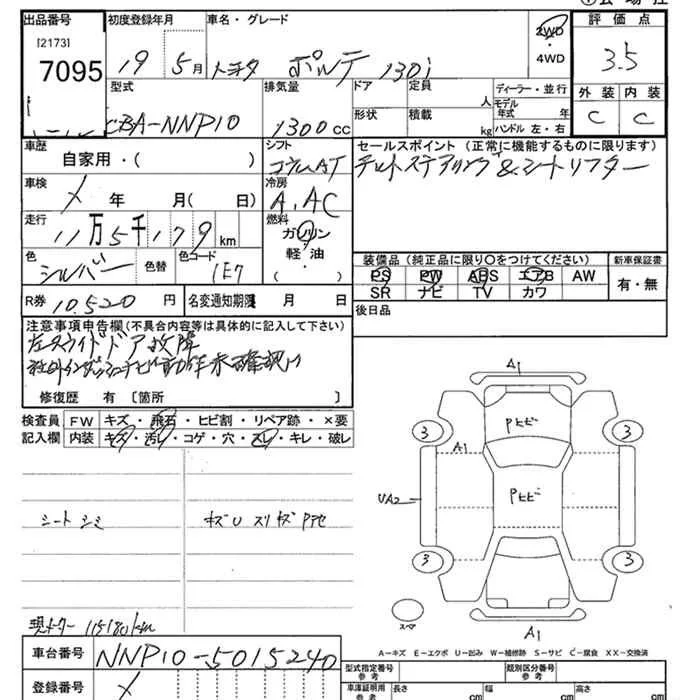 出品番号 初度登録年月 車名・グレード 評価点
[2173]
7095 19 5月 トヨタ ポルテ 130i 2WD・4WD 3.5
型式 排気量 ドア 定員 人 ディーラー・並行 外装 内装
CBA-NNP10 1300cc 形状 積載 kg モデル年式 年 ハンドル 左・右 C C
車歴 自家用・( ) シフト コラムAT セールスポイント (正常に機能するものに限ります)
チルトステアリング &シートリフター
車検 メ 年 月( 日) 冷房 A.AC
走行 11万5千179km 燃料 ガソリン・軽油・( )
色 シルバー 色替 色コード 1E7
装備品 (純正品に限り〇をつけてください) 新車保証書
PS PW ABS エアB AW 有・無
SR ナビ TV カワ
R券 10.520円 名変通知期限 月 日 後日品
注意事項申告欄(不具合内容等は具体的に記入して下さい)
左スライドドア故障
動作未確認
修復歴 有 〔箇所 〕
検査員 FW キズ・飛石・ヒビ割・リペア跡・×要
記入欄 内装 キズ・汚レ・コゲ・穴・スレ・キレ・破レ
A1
Pヒビ
3 3
A1
Pヒビ
UA2
3 3
スペア
A1
シートシミ
現メーター 115180km
A－キズ E－エクボ U－凹み W－補修跡 S－サビ C－腐食 XX－交換済
車台番号 NNP10-5015240
登録番号 メ
型式指定番号参考 類別区分番号参考
車庫証明用参考 長さ cm 幅 cm 高さ cm